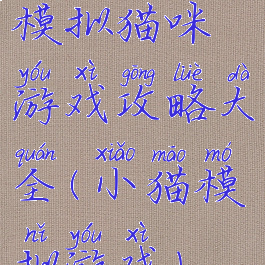 模拟猫咪
yóu xì gōng lüè dà
游戏攻略大
quán xiǎo māo mó
全(小猫模
nǐ yóu xì
拟游戏)